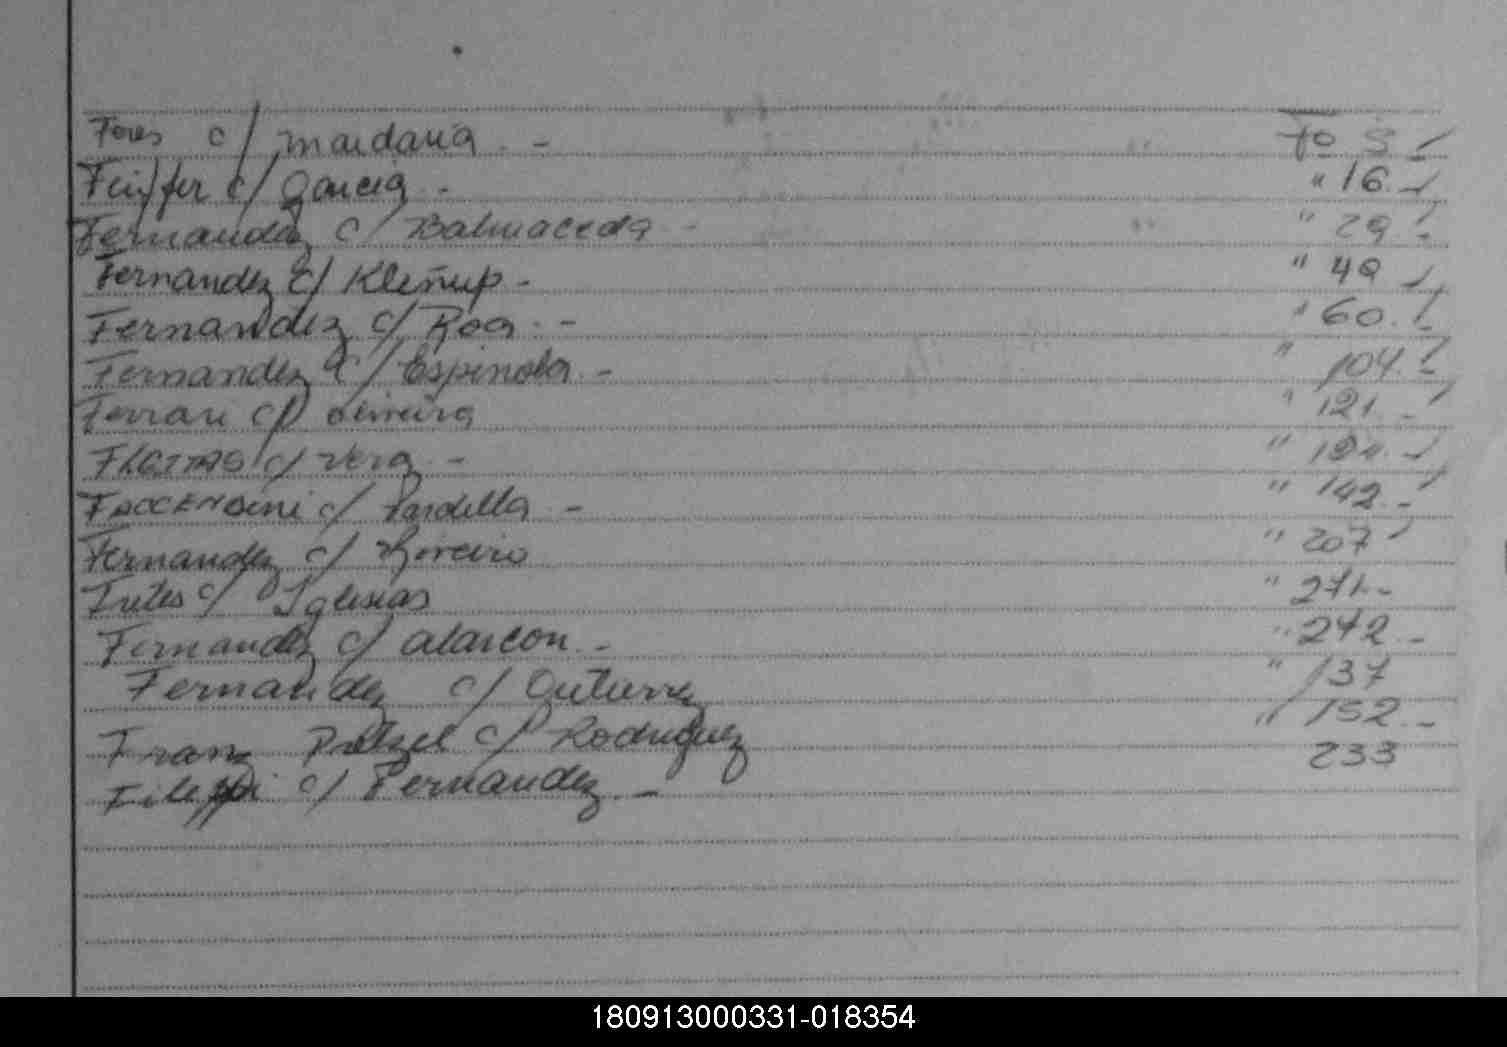 Fores c/ Mardaria. - Fo 3 -
Feiffer c/ Garcia. - " 16. -
Fernandez c/ Balmaceda - " 29. -
Fernandez c/ Kleñup - " 49 -
Fernandez c/ Roa. - " 60. -
Fernandez c/ Espinola. - " 104. -
Ferrari c/ " 121. -
FLEITAS c/ Vera. - " -
FACCENDINI c/ Pardella - " 142. -
Fernandez c/ " 207
c/ Iglesias " 271. -
Fernandez c/ alarcon. - " 272. -
Fernandez c/ Gutierrez " 137
Franz c/ Rodriguez " 152. -
Fileppi c/ Fernandez. - 233
180913000331-018354